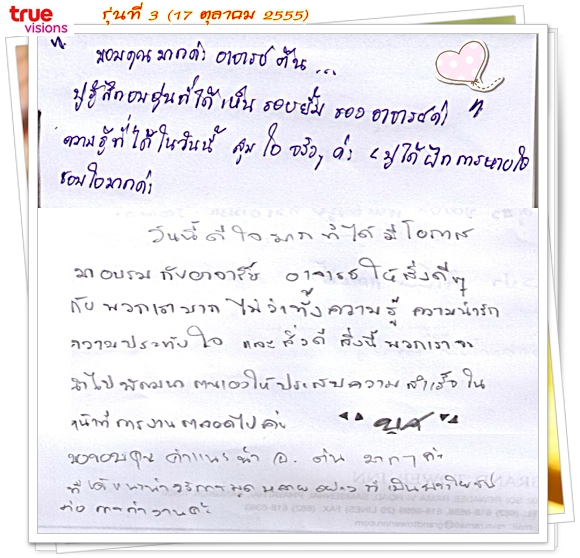 true
visions
รุ่นที่ 3 (17 ตุลาคม 2555)
" ขอบคุณ มากค่ะ อาจารย์ ต้น ...
ปูรู้สึกอบอุ่นที่ได้เห็น รอยยิ้ม ของ อาจารย์ค่ะ "
ความรู้ที่ได้ในวันนี้ คุ้ม ใจ จริงๆ ค่ะ ปูได้ฝึกการหายใจ
ชอบใจมากค่ะ
วันนี้ ดี ใจ มาก ที่ ได้ มี โอกาส
มา อบรม กับอาจารย์ อาจารย์ ให้ สิ่งดีๆ
กับ พวกเรา มาก ไม่ว่าทั้งความ รู้ ความน่ารัก
ความประทับ ใจ และ สิ่งดี สิ่งนี้ พวกเรา จะ
นำไป พัฒนา ตนเองให้ ประสบความ สำเร็จ ใน
หน้าที่ การงาน ตลอดไป ค่ะ
ขอขอบคุณ คำแนะนำ อ. ต้น มากๆ ค่ะ
ที่ได้ หลาย ที่เป็น
ต่อ การทำงานค่ะ